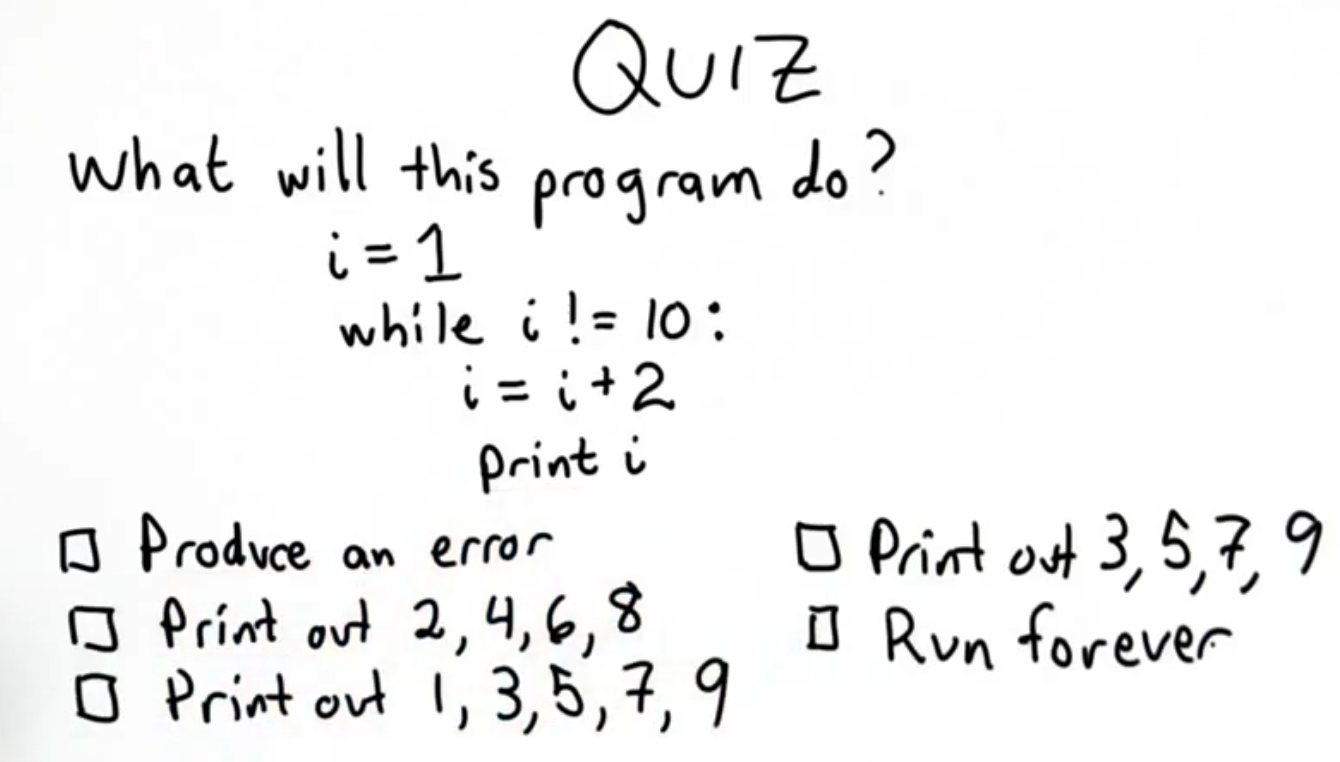 QUIZ
What will this program do?
i = 1
while i != 10:
i = i + 2
print i
Produce an error
Print out 2, 4, 6, 8
Print out 1, 3, 5, 7, 9
Print out 3, 5, 7, 9
Run forever